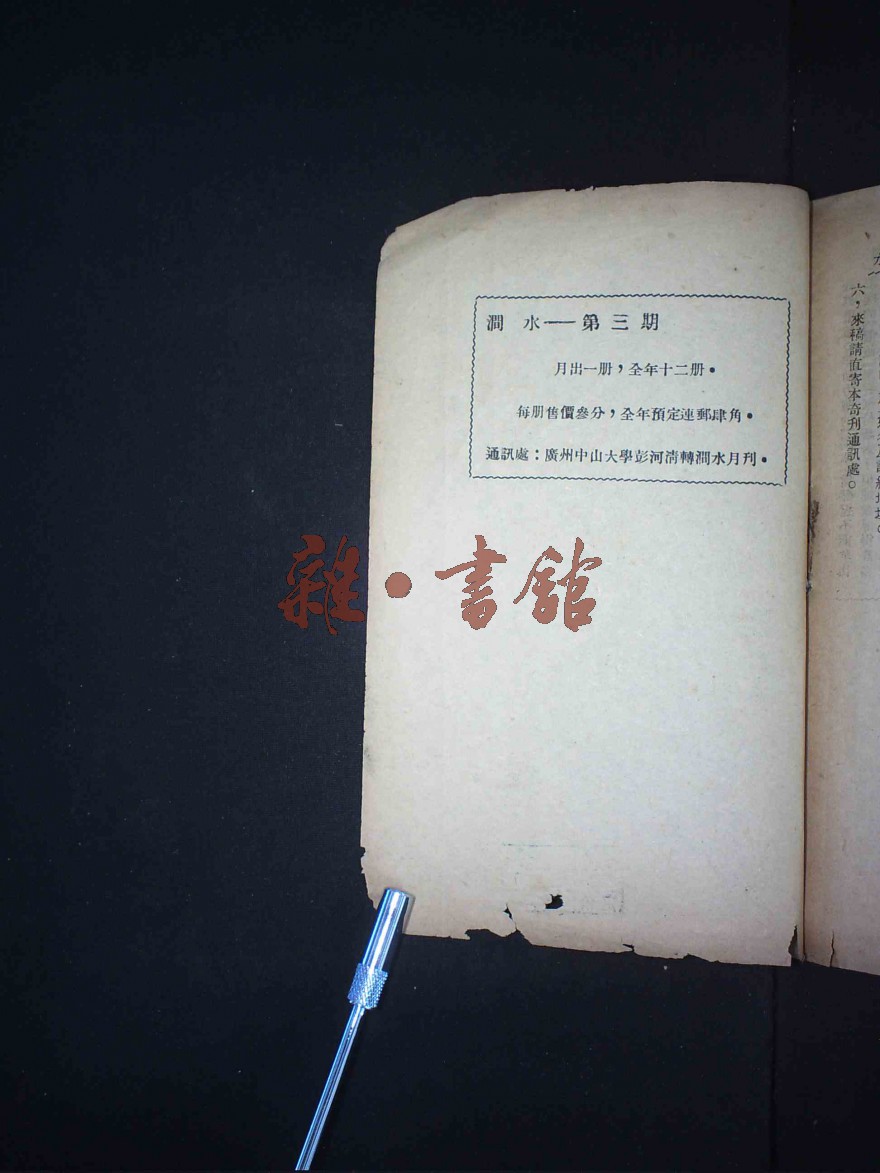 澗水——第三期
月出一册，全年十二册。
每册售價叁分，全年預定連郵肆角。
通訊處：廣州中山大學彭河清轉澗水月刊。
六，來稿請直寄本奇刋通訊處。
雜·書館